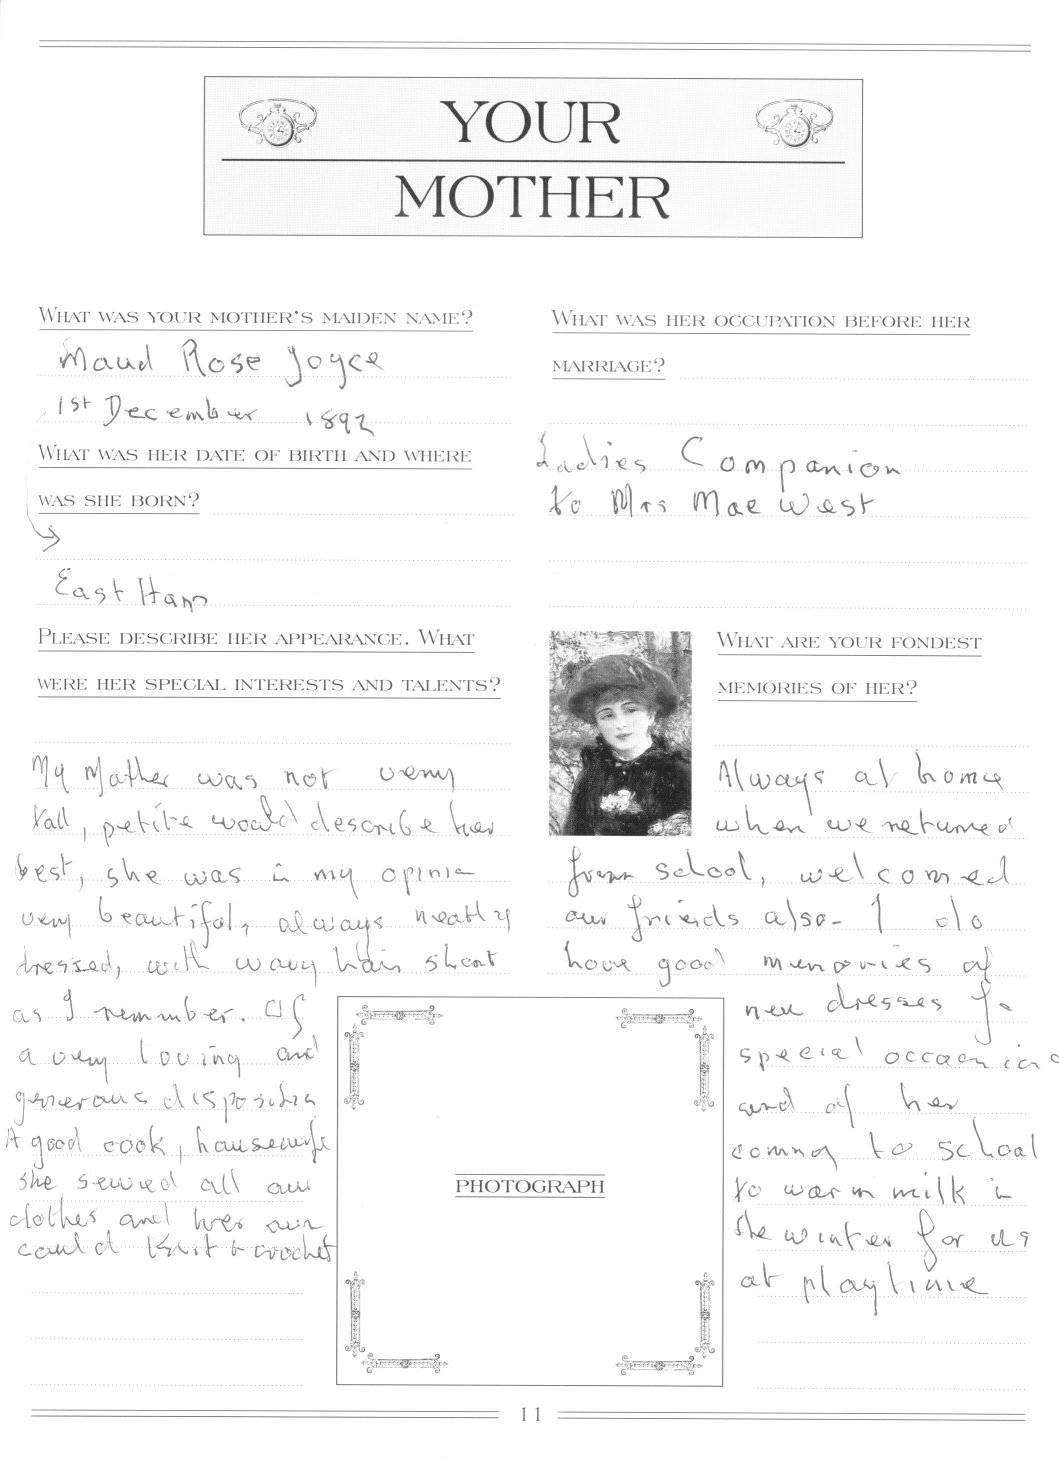 YOUR
MOTHER
WHAT WAS YOUR MOTHER'S MAIDEN NAME?
Maud Rose Joyce
1st December 1892
WHAT WAS HER DATE OF BIRTH AND WHERE
WAS SHE BORN?
East Ham
PLEASE DESCRIBE HER APPEARANCE. WHAT
WERE HER SPECIAL INTERESTS AND TALENTS?
My Mother was not very
tall, petite would describe her
best, she was in my opinion
very beautiful, always neatly
dressed, with wavy hair short
as I remember. Of
a very loving and
generous disposition
A good cook, housewife
she sewed all our
clothes and her own
could knit & crochet
WHAT WAS HER OCCUPATION BEFORE HER
MARRIAGE?
Ladies Companion
to Mrs Mae West
WHAT ARE YOUR FONDEST
MEMORIES OF HER?
Always at home
when we returned
from school, welcomed
our friends also - I do
have good memories of
new dresses for
special occasions
and of her
coming to school
to warm milk in
the winter for us
at playtime
PHOTOGRAPH
11